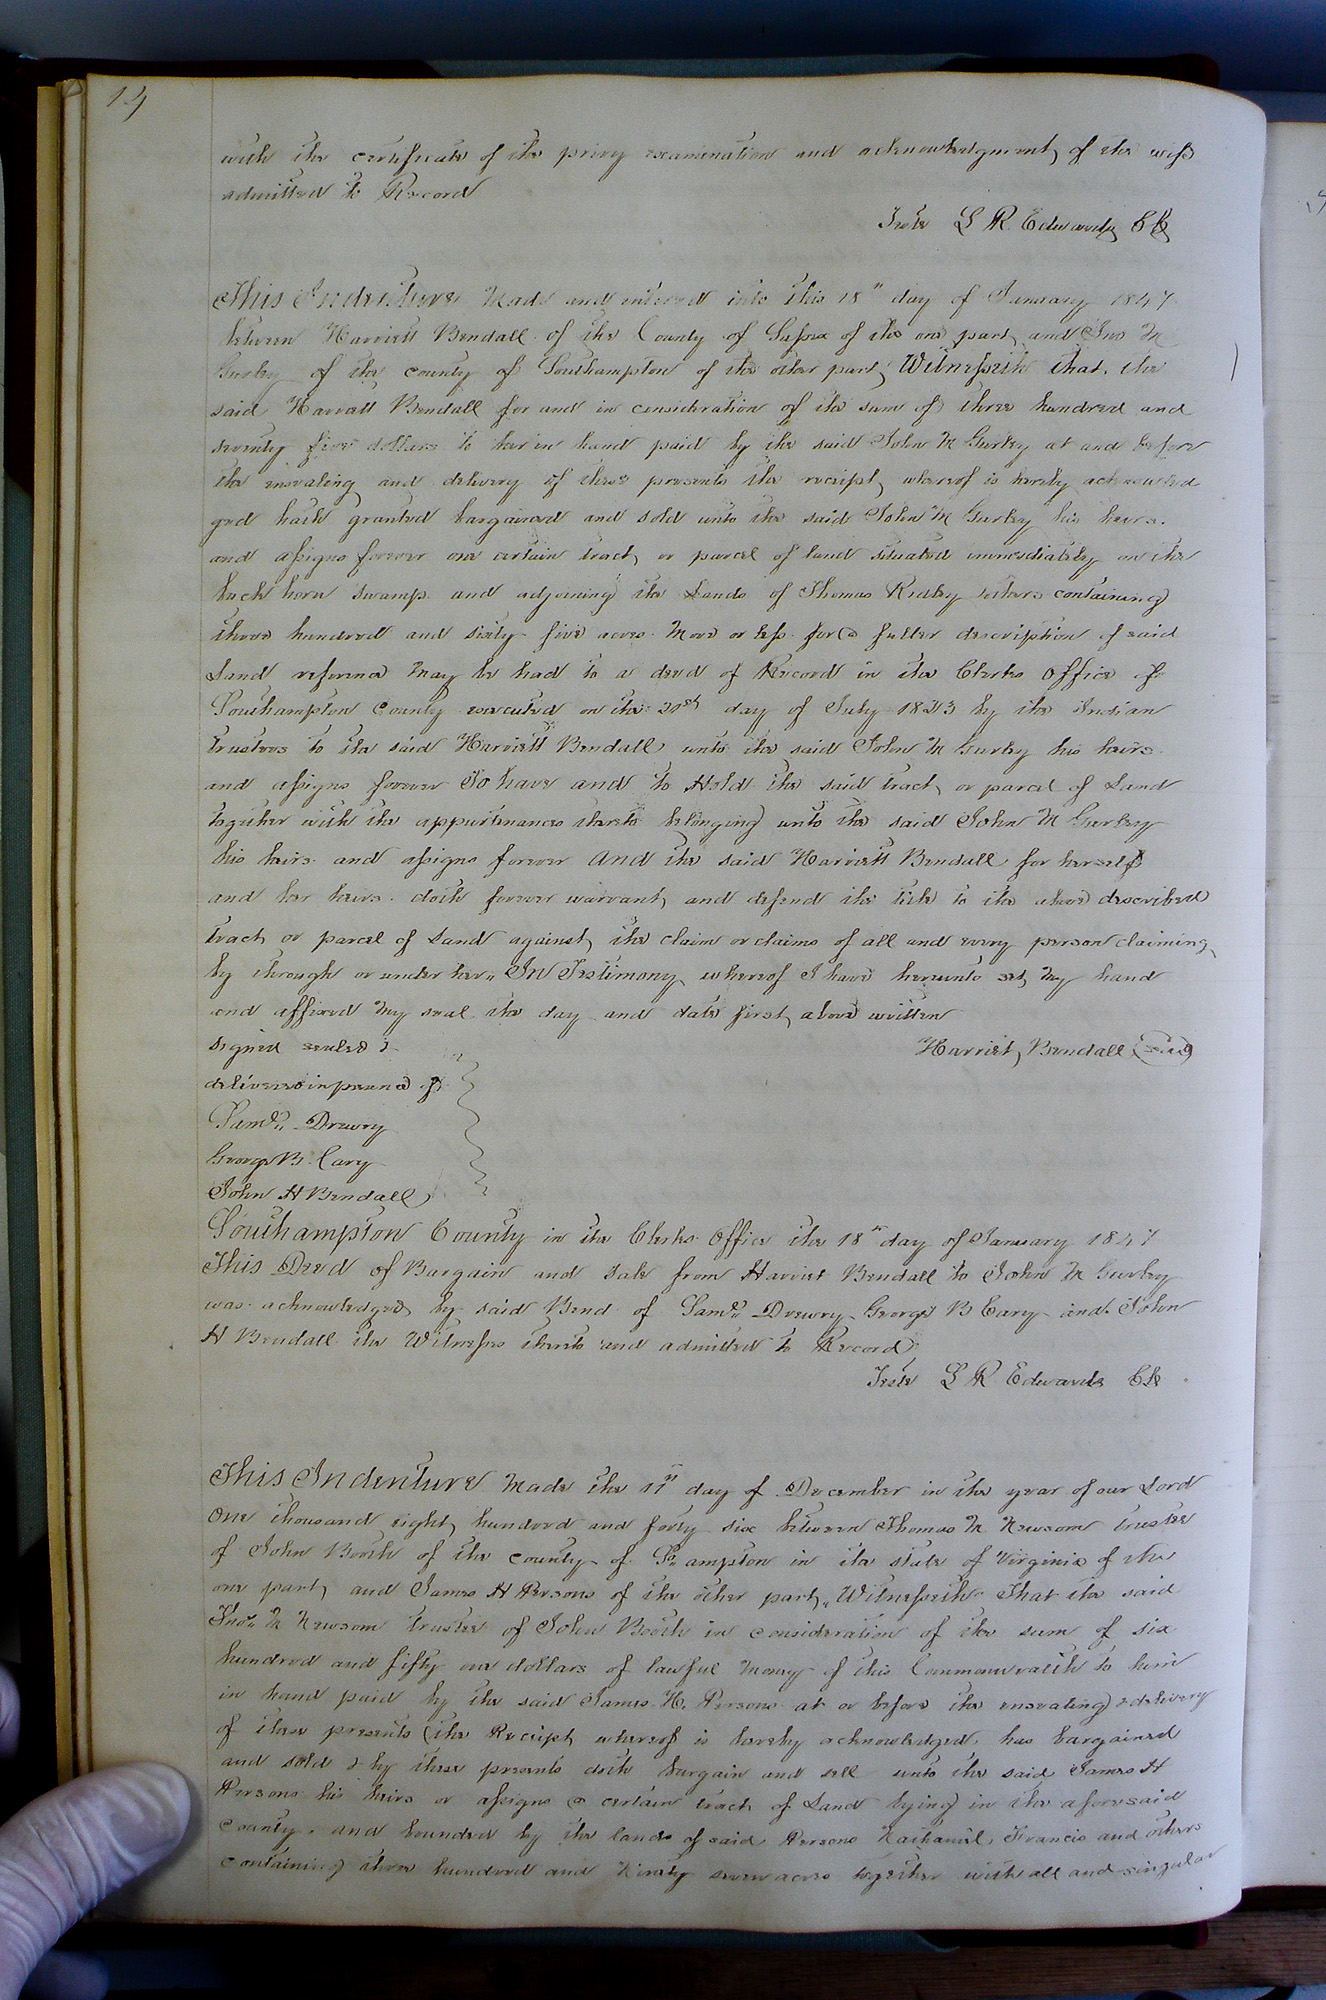 14
with the certificate of the privy examination and acknowledgment of the wife
admitted to Record
Teste L R Edwards Clk
This Indenture Made and entered into this 18th day of January 1847
between Harriett Bendall of the County of Sussex of the one part and Jno M
Gurley of the county of Southampton of the other part; Witnesseth that, the
said Harriett Bendall for and in consideration of the sum of three hundred and
seventy five dollars to her in hand paid by the said John M Gurley at and before
the ensealing and delivery of these presents the receipt whereof is hereby acknowled
ged hath granted bargained and sold unto the said John M Gurley his heirs
and assigns forever one certain tract or parcel of land situated immediately on the
buck horn swamp and adjoining the Lands of Thomas Ridley others containing
three hundred and sixty five acres More or less for a fuller description of said
Land reference May be had to a deed of Record in the Clerks Office of
Southampton County executed on the 21st day of July 1843 by the Indian
trustees to the said Harriett Bendall unto the said John M Gurley his heirs
and assigns forever To have and to Hold the said tract or parcel of Land
together with the appurtenances thereto belonging unto the said John M Gurley
his heirs and assigns forever And the said Harriett Bendall for herself
and her heirs doth forever warrant and defend the title to the above described
tract or parcel of Land against the claim or claims of all and every person claiming
by through or under her, In Testimony whereof I have hereunto set My hand
and affixed My seal the day and date first above written
signed sealed & Harriet Bendall (seal)
delivered in presence of
Saml. Drewry
George B. Cary
John H Bendall
Southampton County in the Clerks Office the 18th day of January 1847
This Deed of Bargain and Sale from Harriet Bendall to John M Gurley
was acknowledged by said Bend of Saml. Drewry George B Cary and John
H Bendall the Witnesses thereto and admitted to Record
Teste L R Edwards Clk
This Indenture Made the 11th day of December in the year of our Lord
One thousand eight hundred and forty six between Thomas M Newsom trustee
of John Booth of the county of So. ampton in the state of Virginia of the
one part and James H Persons of the other part, Witnesseth That the said
Thos. M Newsom trustee of John Booth in consideration of the sum of six
hundred and fifty one dollars of lawful Money of this Commonwealth to him
in hand paid by the said James H. Persons at or before the ensealing & delivery
of these presents (the Receipt whereof is hereby acknowledged, has bargained
and sold & by these presents doth bargain and sell unto the said James H
Persons his heirs or assigns a certain tract of Land lying in the aforesaid
County, and bounded by the lands of said Persons Nathaniel Francis and others
containing three hundred and Ninety seven acres together with all and singular